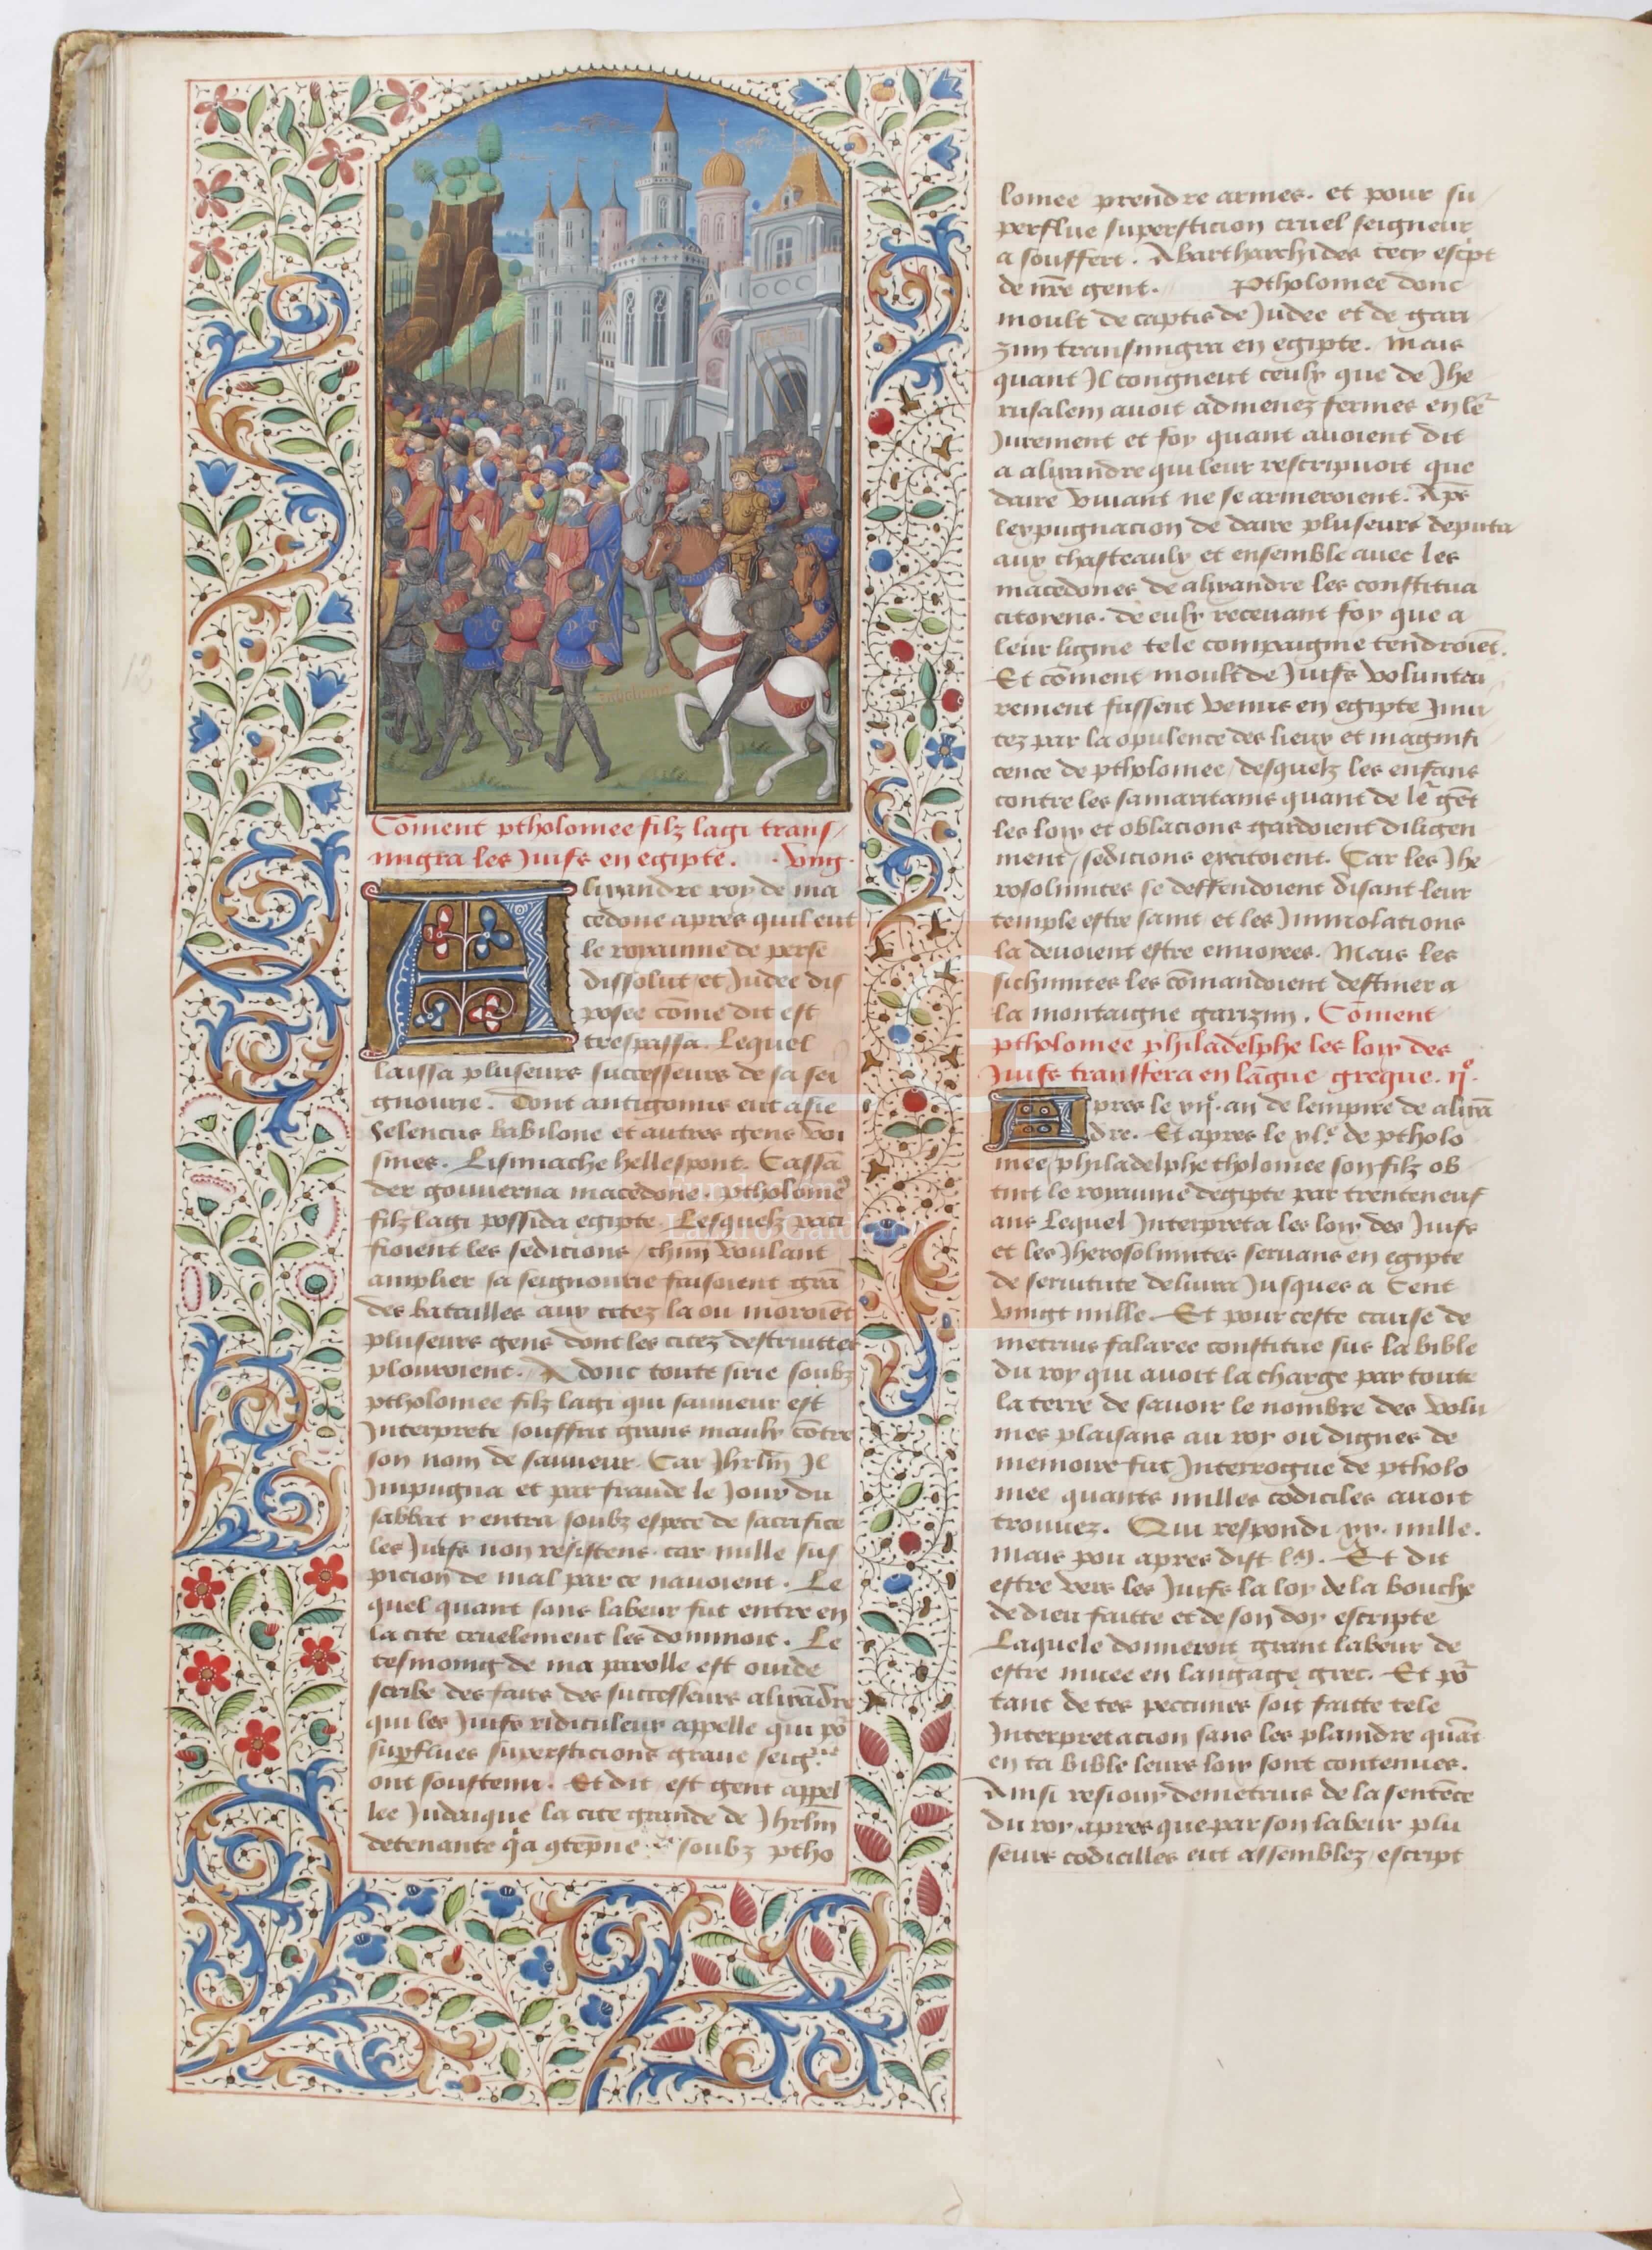 Com̄ent ptholomee filz lagi trans/
migra les Juifs en egipte. · Vng·
Alixandre roy de ma
cedone apres quil eut
le royaume de perse
dissolut et Judee dis
posee com̄e dit est
trespassa. Lequel
laissa pluseurs successeurs de sa sei
gnourie. Dont antigonus eut asie
Seleucus babilone et autres gens voi
sines. Lismache hellespont. Cassā
der gouuerna macedone. ptholome
filz lagi possida egipte. Lesquelz paci
fioient les sedicions / chūn voulant
amplier sa seignourie faisoient grā
des batailles aux citez la ou moroiēt
pluseurs gens dont les citez destruittes
plouroient. A donc toute sirie soubz
ptholomee filz lagi qui sauueur est
Interprete souffrit grans maulx cōtre
son nom de sauueur. Car Jhrlm̄ Jl
Impugna et par fraude le Jour du
sabbat y entra soubz espece de sacrifice
les Juifs non resistens. car nulle sus
picion de mal par ce nauoient. Le
quel quant sans labeur fut entre en
la cite cruelement les dominoit. Le
tesmoing de ma parolle est ouide
scribe des faits des successeurs alixādre
qui les Juifs ridiculeux appelle qui po
superflues supersticions graue seigr
ont soustenu. Et dit est gent appel
lee Judaique la cite grande de Jhrlm̄
detenante soubz ptho
lomee prendre armes. et pour su
perflue supersticion cruel seigneur
a souffert. Abartharchides cecy escript
de nr̄e gent. Ptholomee donc
moult de captis de Judee et de gari
zim transmigra en egipte. Mais
quant Jl congneut ceulx que de Jhe
rusalem auoit admenez fermes en le
Jurement et foy quant auoient dit
a alixandre qui leur rescripuoit que
daire viuant ne se armeroient. Apẽs
lexpugnacion de daire pluseurs deputa
aux chasteaulx et ensemble auec les
macedones de alixandre les constitua
citoyens. de eulx receuant foy que a
leur lignie tele compaignie tendroiēt.
Et com̄ent moult de Juifs volunta
rement fussent venus en egipte Inui
tez par la opulence des lieux et magnifi
cence de ptholomee / desquelz les enfans
contre les samaritains quant de le gēt
les loix et oblacions gardoient diligen
ment / sedicions excitoient. Car les Jhe
rosolimites se deffendoient disant leur
temple estre saint et les Immolacions
la deuoient estre enuoyees. Mais les
sichimites les com̄andoient destiner a
la montaigne garizim. Com̄ent
ptholomee philadelphe les loix des
Juifs transfera en lāgue greque. ijᵉ.
Apres le xijᵉ. an de lempire de alixā
dre. Et apres le xlᵉ. de ptholo
mee / philadelphe tholomee son filz ob
tint le royaume degipte par trenteneuf
ans Lequel Interpreta les loix des Juifs
et les Jherosolimites seruans en egipte
de seruitute deliura Jusques a Cent
vingt mille. Et pour ceste cause de
metrius falaree constitue sus la bible
du roy qui auoit la charge par toute
la terre de sauoir le nombre des volu
mes plaisans au roy ou dignes de
memoire fut Interrogue de ptholo
mee quants milles codiciles auoit
trouuez. Qui respondi xx. mille.
Mais pou apres dist Et dit
estre vers les Juifs la loy de la bouche
de dieu faitte et de son doy escripte
Laquele donneroit grant labeur de
estre muee en langage grec. Et po
tant de tes peccunes soit faitte tele
Interpretacion sans les plaindre quāt
en ta bible leurs loix sont contenues.
Ainsi resiouy demetrius de la sentēce
du roy apres que par son labeur plu
seurs codicilles eut assemblez / escript
12
Fundación
Lázaro Galdiano